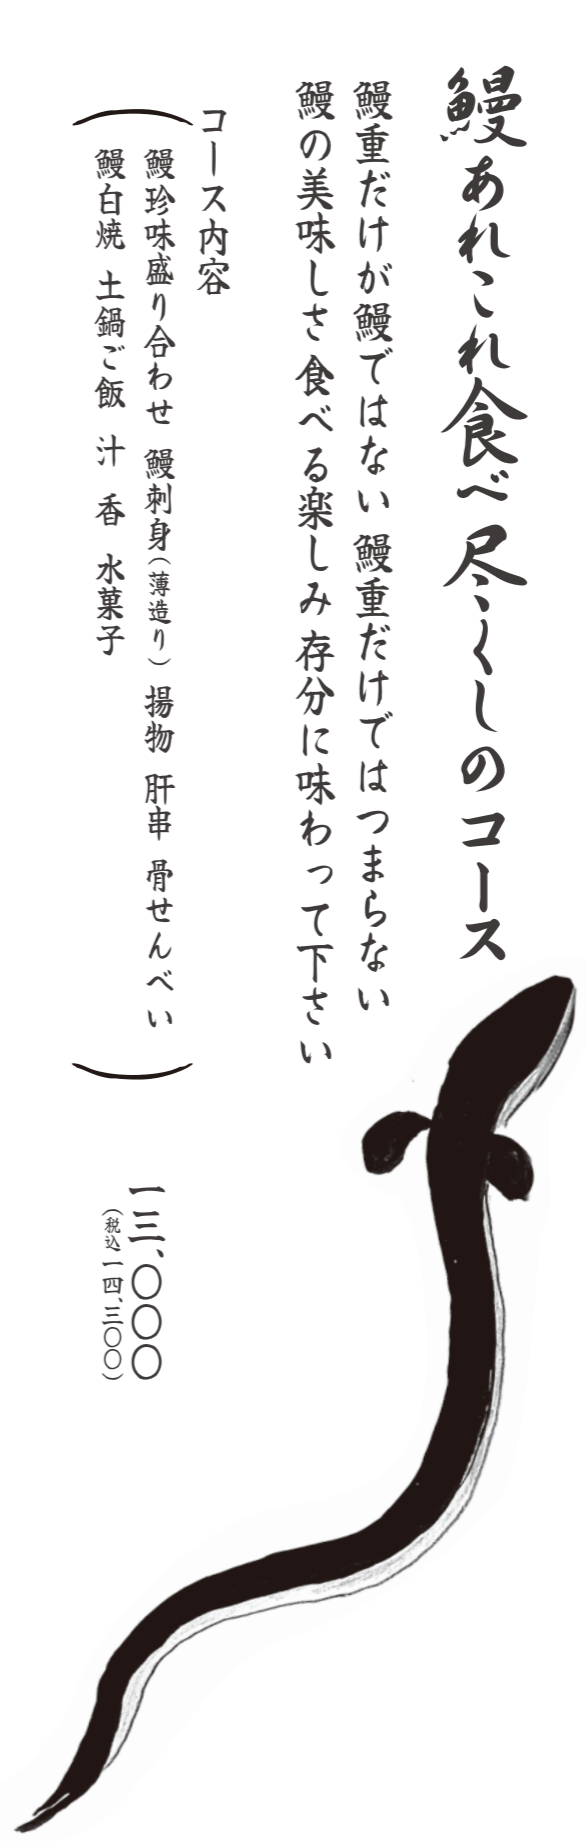 鰻あれこれ食べ尽くしのコース
鰻重だけが鰻ではない 鰻重だけではつまらない
鰻の美味しさ 食べる楽しみ 存分に味わって下さい
コース内容
(鰻珍味盛り合わせ 鰻刺身(薄造り) 揚物 肝串 骨せんべい
鰻白焼 土鍋ご飯 汁 香 水菓子)
一三、〇〇〇
(税込 一四、三〇〇)